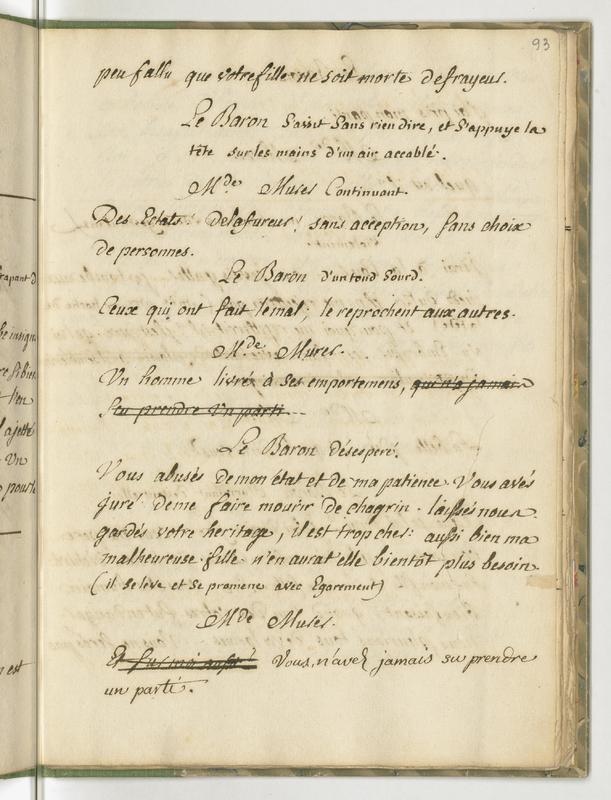 93
peu fallu que votre fille ne soit morte de frayeur.
Le Baron S'assit sans rien dire, et s'appuye la
tête sur les mains d'un air accablé.
Mde Murer Continuant.
Des Eclats! De la fureur! sans acception, sans choix
de personnes.
Le Baron d'un ton d sourd.
Ceux qui ont fait le mal, le reprochent aux autres.
Mde Murer.
Un homme livré à ses emportemens, qui n'a jamais
sçu prendre un parti...
Le Baron désesperé.
Vous abusés de mon état et de ma patience. Vous avés
juré de me faire mourir de chagrin. laissés nous
gardés votre heritage, il est trop cher: aussi bien ma
malheureuse fille n'en aurat'elle bientôt plus besoin
(il se leve et se promene avec Egarement)
Mde Murer.
Vous, n'avez jamais su prendre
un parti.
rapant d
pouste
est